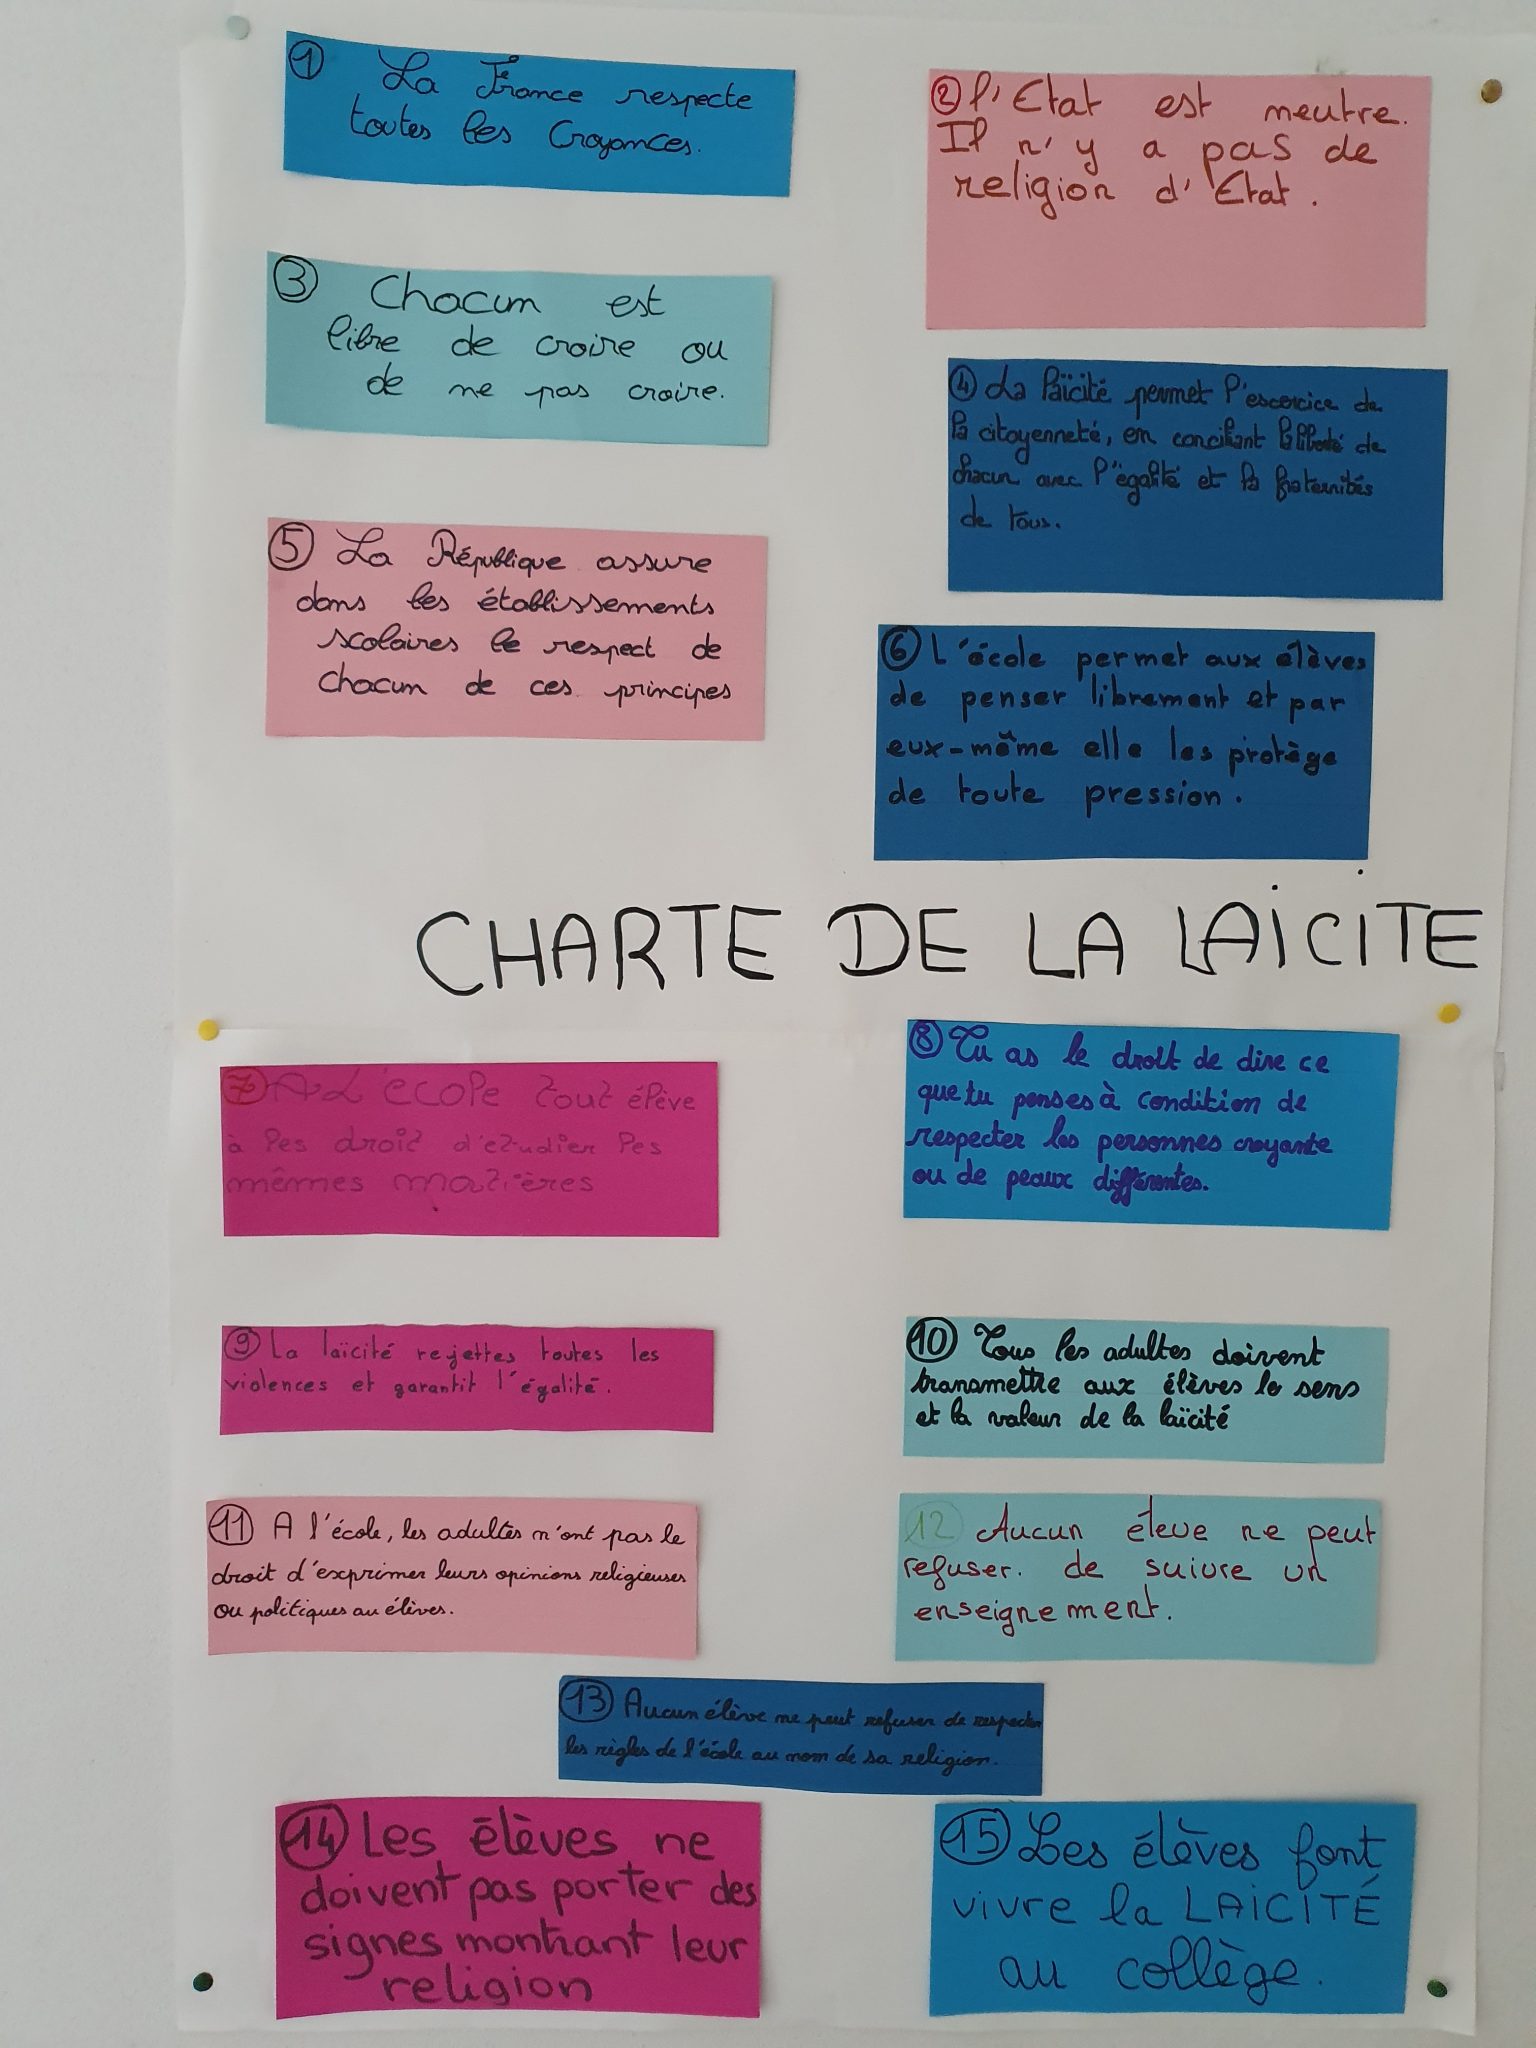 ① La France respecte
toutes les Croyances.
② l'Etat est neutre.
Il n'y a pas de
religion d'Etat.
③ Chacun est
libre de croire ou
de ne pas croire.
④ La laïcité permet l'escercice de
la citoyenneté, en conciliant la liberté de
chacun avec l'égalité et la fraternités
de tous.
⑤ La République assure
dans les établissements
scolaires le respect de
chacun de ces principes
⑥ L'école permet aux élèves
de penser librement et par
eux-même elle les protège
de toute pression.
CHARTE DE LA LAICITE
⑦ A L'ECOLE tout élève
à les droit d'etudier les
mêmes matières
⑧ Tu as le droit de dire ce
que tu penses à condition de
respecter les personnes croyante
ou de peaux différentes.
⑨ La laïcité rejettes toutes les
violences et garantit l'égalité.
⑩ Tous les adultes doivent
transmettre aux élèves le sens
et la valeur de la laïcité
⑪ A l'école, les adultes n'ont pas le
droit d'exprimer leurs opinions religieuses
ou politiques au élèves.
⑫ Aucun éleve ne peut
refuser. de suivre un
enseignement.
⑬ Aucun élève ne peut refuser de respecter
les règles de l'école au nom de sa religion.
⑭ Les élèves ne
doivent pas porter des
signes montrant leur
religion
⑮ Les élèves font
vivre la LAICITÉ
au collège.